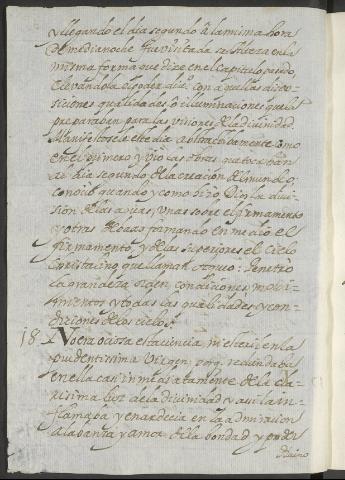 y llegando el dia segundo â la misma hora
de media noche fue visitada su Alteza en la
misma forma que dixe en el capitulo pasado,
elevandola el poder divi.º con aquellas dispo-
siciones qualidades, ô illuminaciones que la
preparaban para las visiones de la divinidad.
Manifestosele este dia abstractivamente como
en el primero, y vio las obras que tocaban
al dia segundo de la creacion del mundo, y
conocio quando, y como hizo Dios la divi-
sion de las aguas, unas sobre el firmamento
y otras debaxo formando en medio el
firmamento y de las superiores el cielo
cristalino, que llaman Aqueo: Penetro
la grandeza, orden, condiciones, movi-
mientos y todas las qualidades, y con-
diciones de los cielos.
18. No era ociosa esta ciencia, ni esteril en la
prudentissima Virgen; porq. redundaba
en ella casi inmediatamente de la cla-
risima luz de la divinidad, y asi la in-
flamaba, y enardecia en la admiracion
alabanza y amor de la bondad y poder
divino